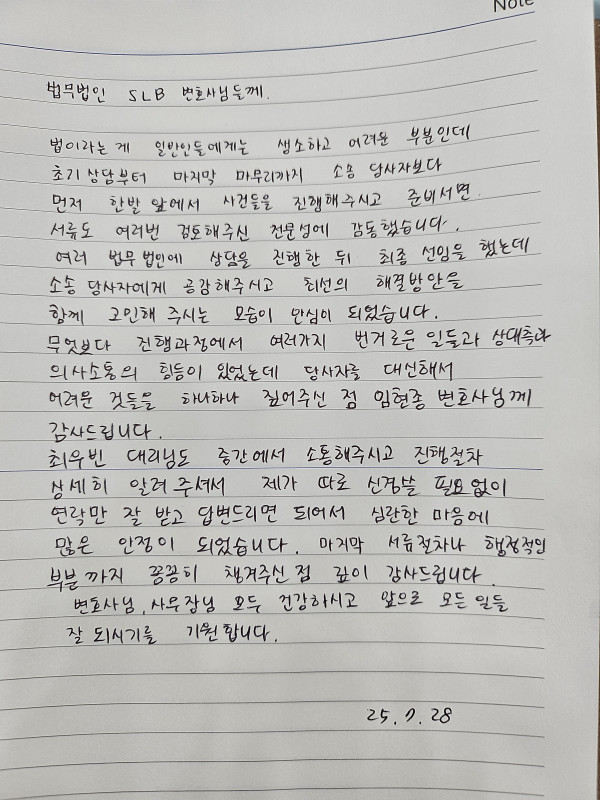 Note
법무법인 SLB 변호사님들께.
법이라는 게 일반인들에게는 생소하고 어려운 부분인데
초기 상담부터 마지막 마무리까지 소송 당사자보다
먼저 한발 앞에서 사건들을 진행해주시고 준비서면.
서류도 여러번 검토해주신 전문성에 감동했습니다.
여러 법무법인에 상담을 진행한 뒤 최종 선임을 했는데
소송 당사자에게 공감해주시고 최선의 해결방안을
함께 고민해 주시는 모습이 안심이 되었습니다.
무엇보다 진행과정에서 여러가지 번거로운 일들과 상대측과
의사소통의 힘듬이 있었는데 당사자를 대신해서
어려운 것들을 하나하나 짚어주신 점 임현종 변호사님께
감사드립니다.
최우빈 대리님도 중간에서 소통해주시고 진행절차
상세히 알려 주셔서 제가 따로 신경쓸 필요없이
연락만 잘 받고 답변드리면 되어서 심란한 마음에
많은 안정이 되었습니다. 마지막 서류절차나 행정적인
부분까지 꼼꼼히 챙겨주신 점 깊이 감사드립니다.
변호사님, 사무장님 모두 건강하시고 앞으로 모든 일들
잘 되시기를 기원합니다.
25. 7. 28